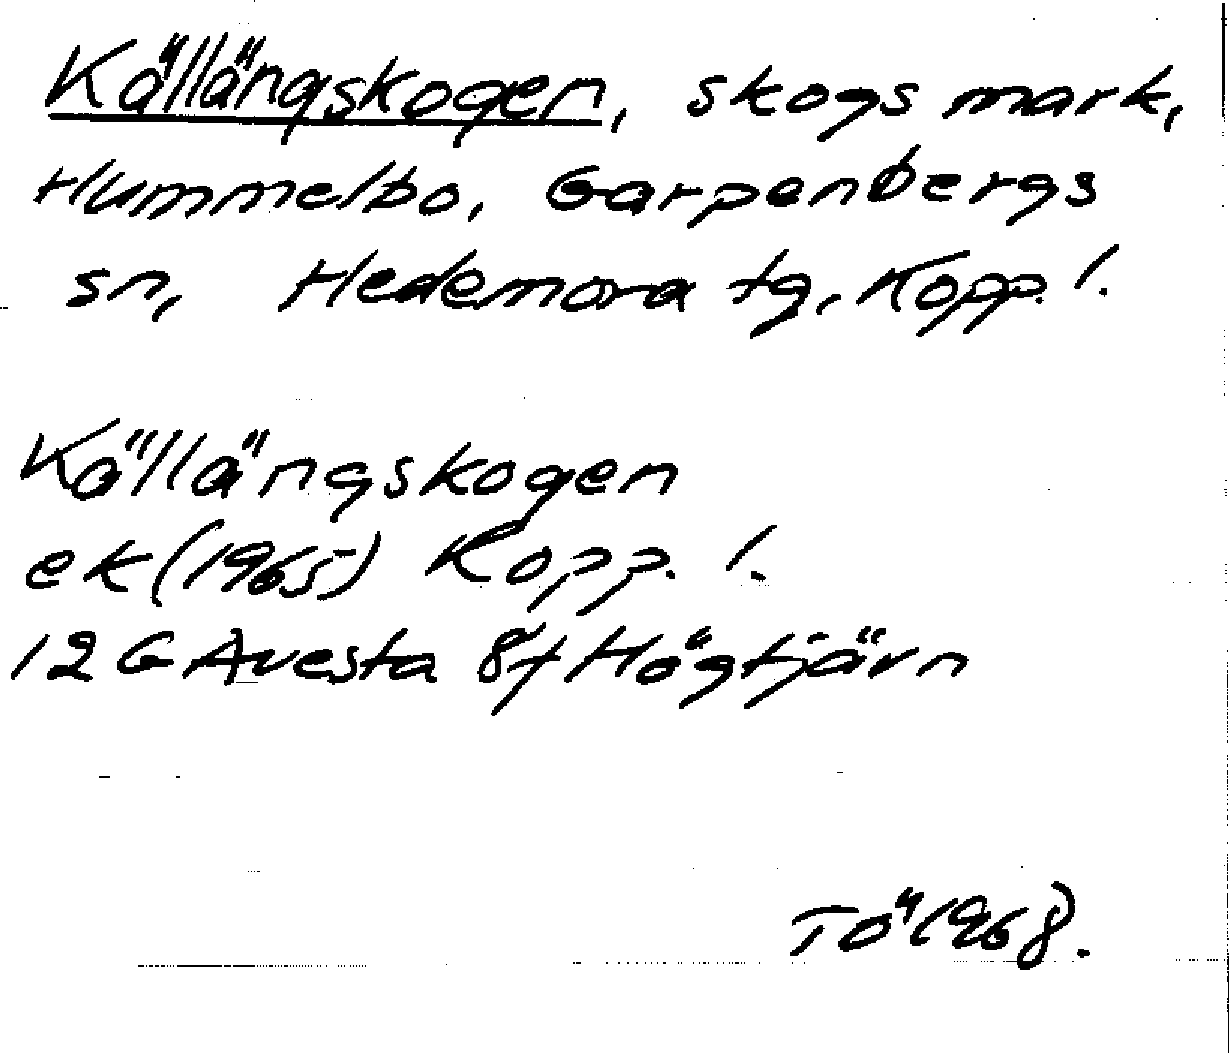 Källängskogen, skogsmark,
Hummelbo, Garpenbergs
sn, Hedemora tg, Kopp. l.
Källängskogen
ek (1965) Kopp. l.
12 G Avesta 8f Högtjärn
TÖ 1968.